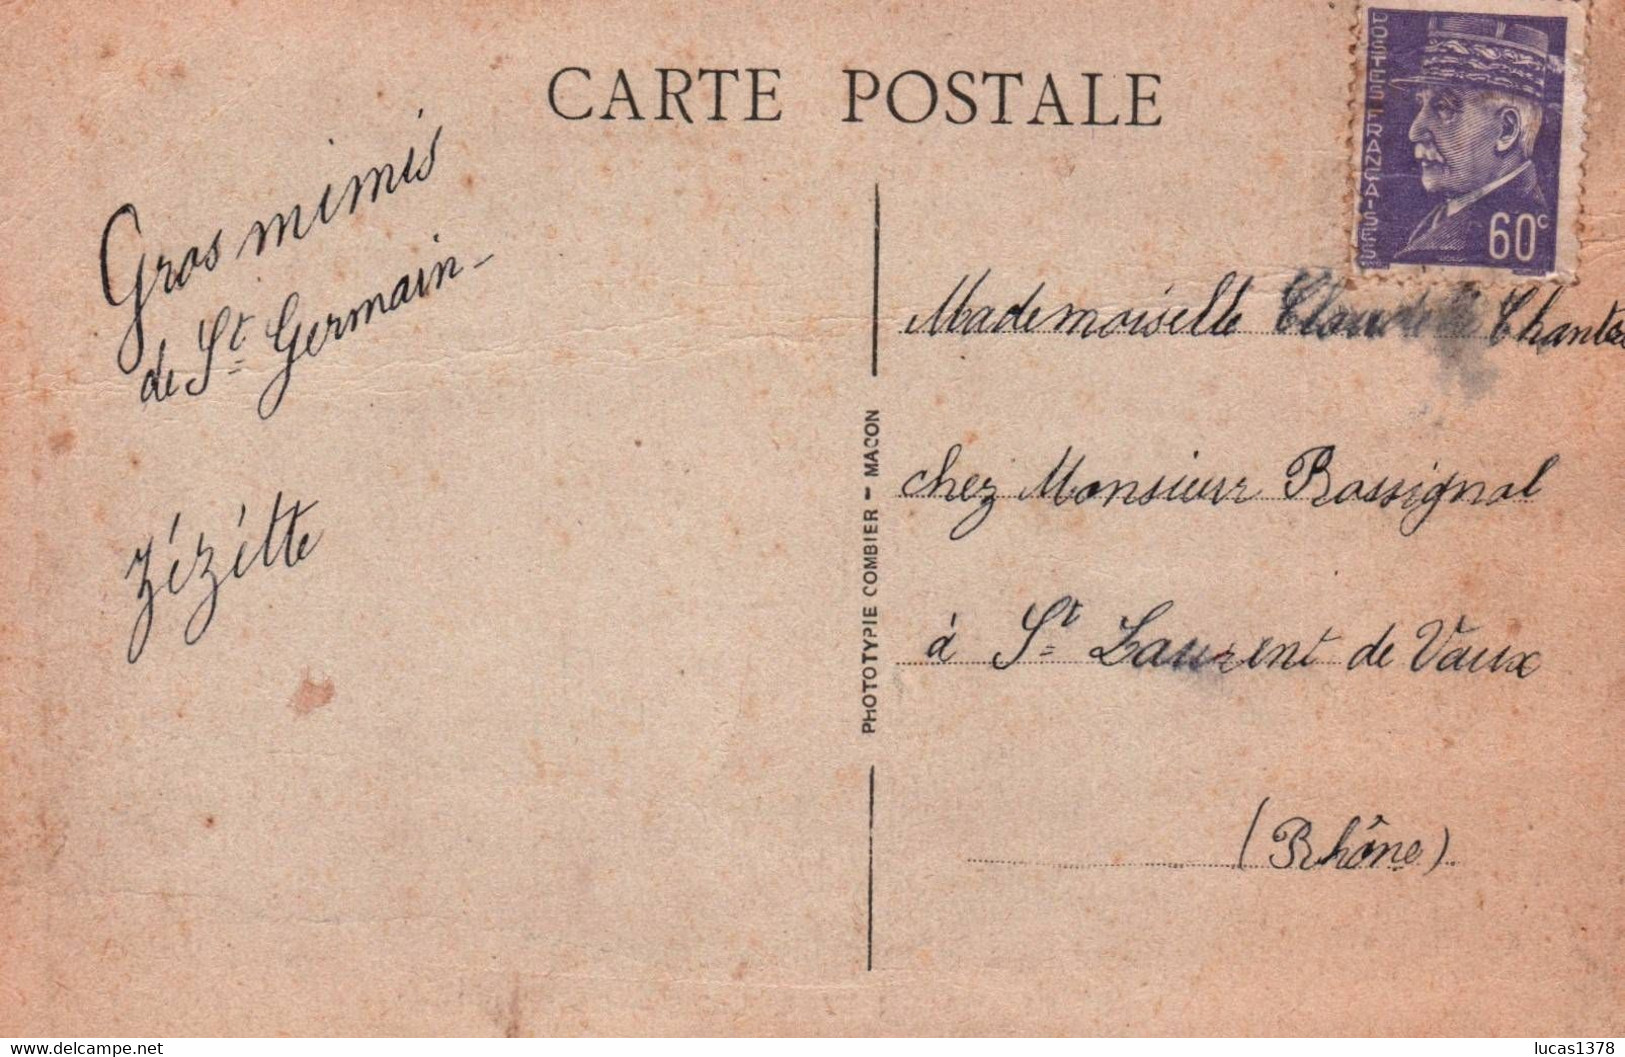 CARTE POSTALE
POSTES FRANÇAISES
60c
Gros mimis
de St Germain -
Zézétte
PHOTOTYPIE COMBIER - MACON
Mademoiselle Claudette
chez Monsieur Rossignol
à St Laurent de Vaux
(Rhône)
delcampe.net
lucas1378